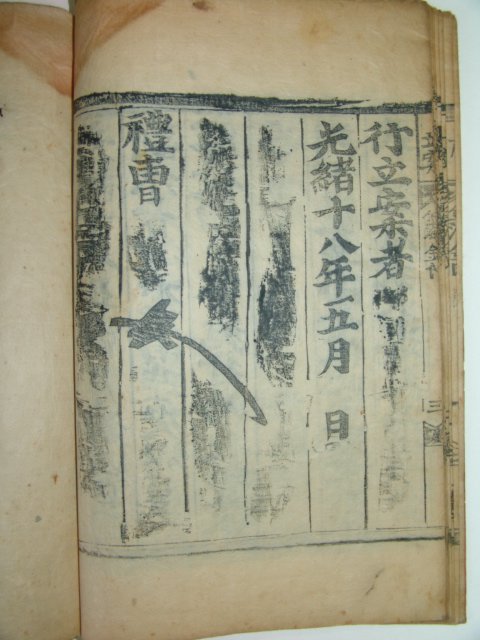 行立案者
光緒十八年五月　日
禮曺